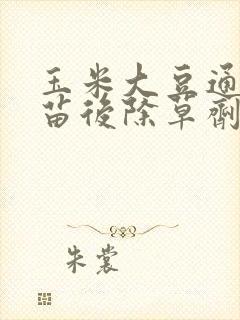 玉米大豆通
苗後除草劑
朱裳